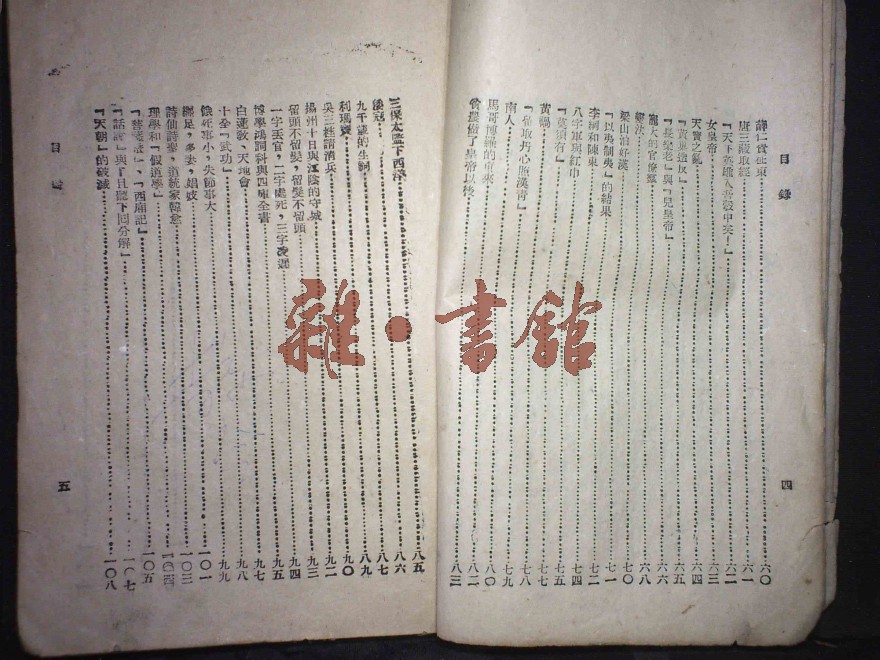 目錄
薛仁貴征東 六〇
唐三藏取經 六一
『天下英雄入吾彀中矣！』 六二
女皇帝 六三
天寶之亂 六四
『黃巢造反』 六五
『長樂老』與『兒皇帝』 六六
龐大的官僚羣 六八
變法 六八
梁山泊好漢 七〇
『以夷制夷』的結果 七一
李綱和陳東 七二
八字軍與紅巾 七四
『莫須有』 七五
黃禍 七七
『留取丹心照漢青』 七七
南人 七九
馬哥博羅的東來 八〇
曾經做了皇帝以後 八二
八三
四
目錄
三保太監下西洋 八五
倭寇 八六
九千歲的生祠 八七
利瑪竇 八九
吳三桂請清兵 九〇
揚州十日與江陰的守城 九二
留頭不留髮，留髮不留頭 九三
一字丟官，二字處死，三字凌遲 九四
博學鴻詞科與四庫全書 九五
白蓮教、天地會 九七
十全『武功』 九八
餓死事小，失節事大 九九
纏足，多妻，娼妓 一〇一
詩仙詩聖，道統家韓愈 一〇三
理學和『假道學』
『琵琶記』、『西廂記』 一〇五
『話說』與『且聽下回分解』 一〇七
『天朝』的破滅 一〇八
五
雜·書館